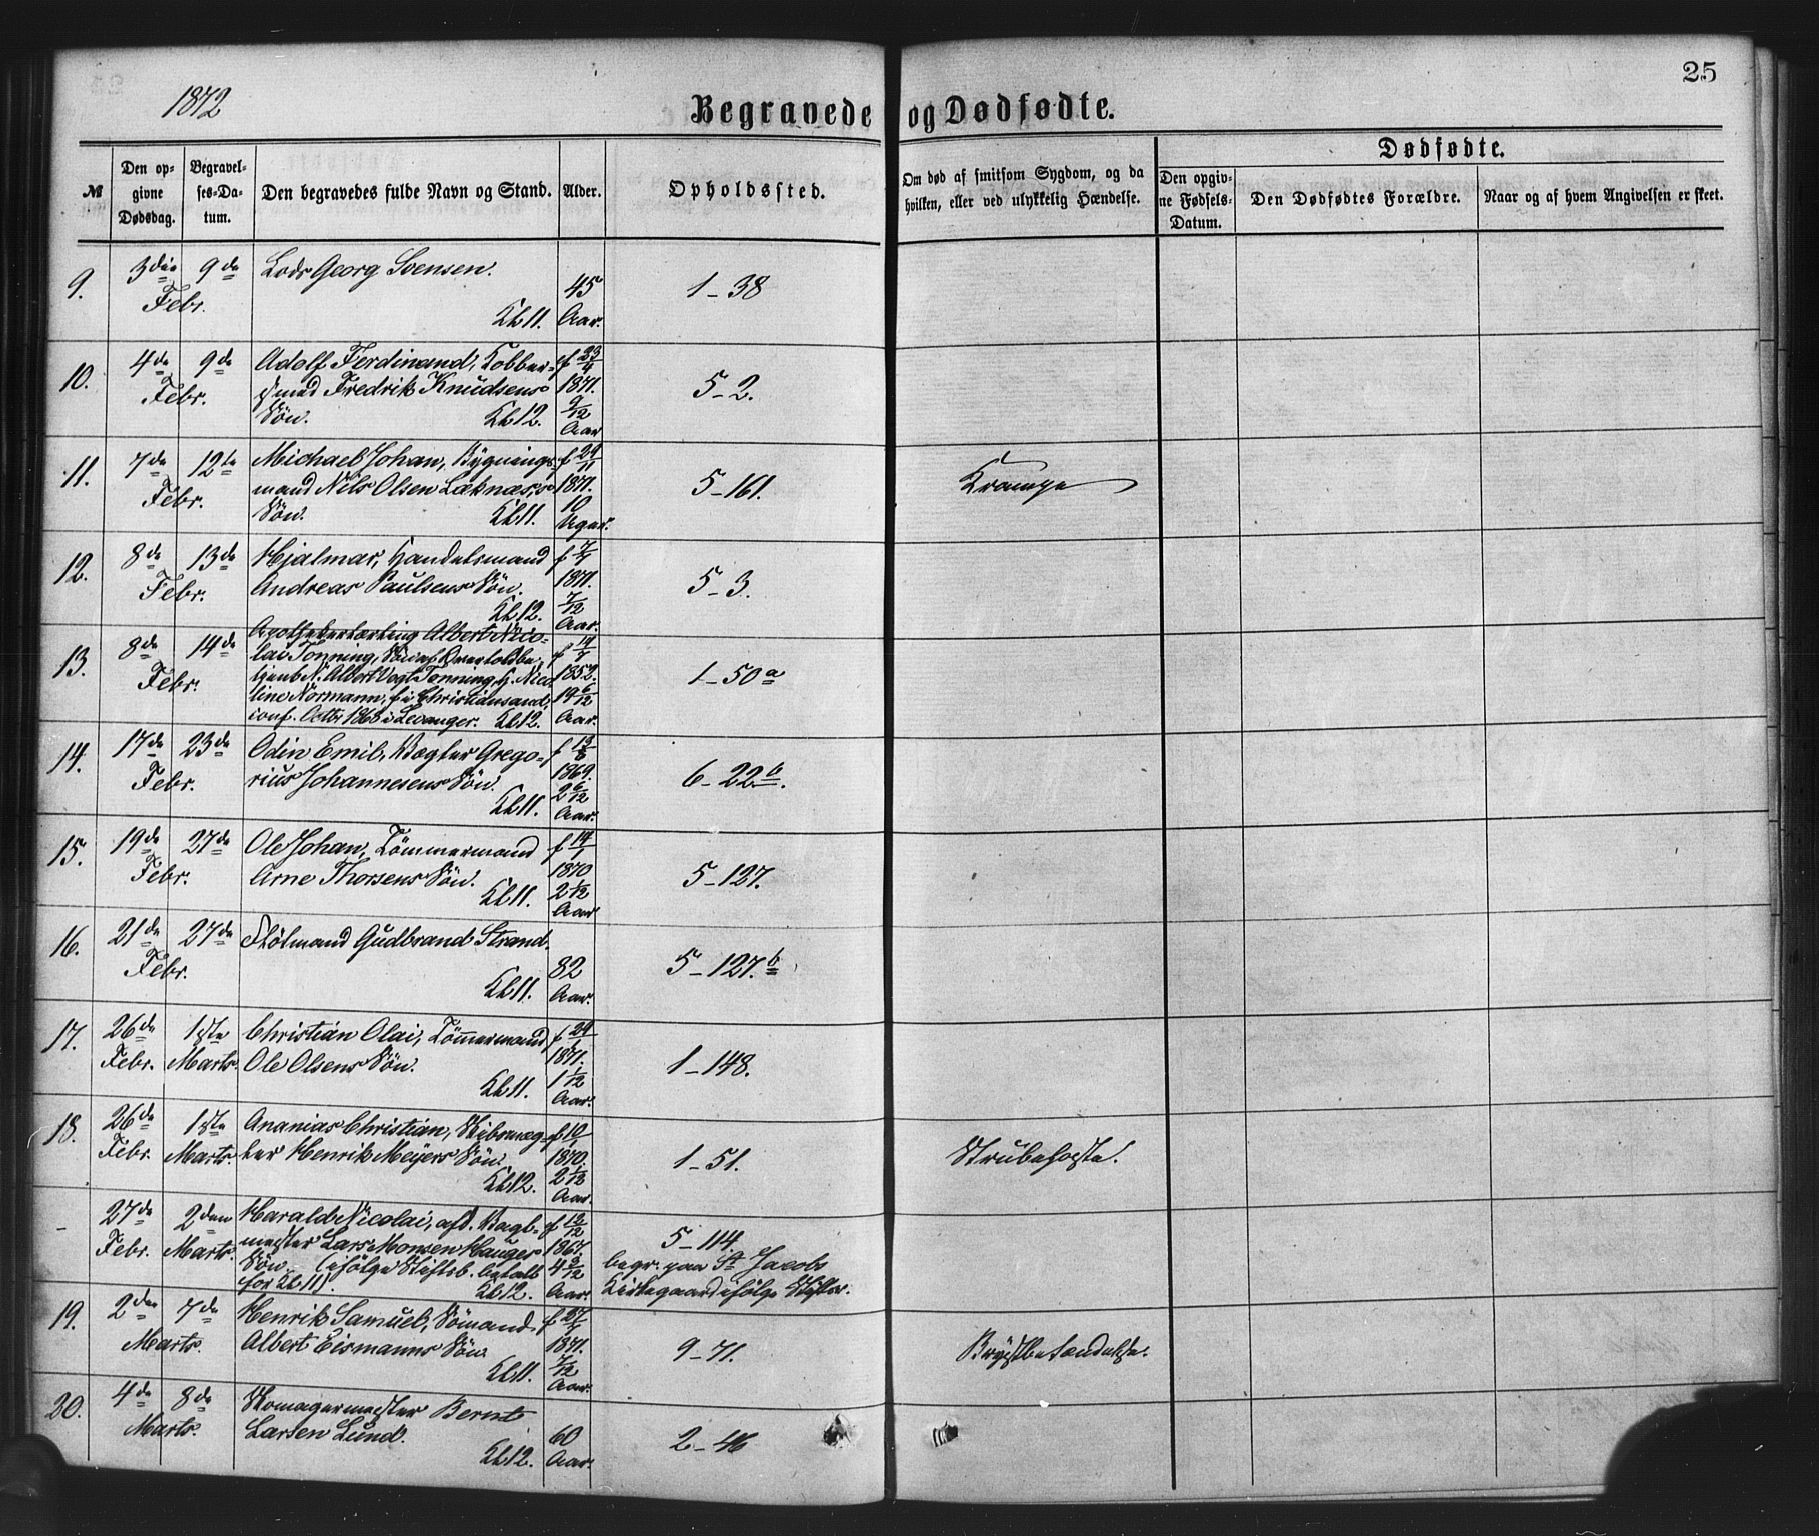 25
1872
Begravede og Dødfødte.
№
Den opgivne Dødsdag.
Begravelses-Datum.
Den begravedes fulde Navn og Stand.
Alder.
Opholdssted.
Om død af smitsom Sygdom, og da hvilken, eller ved ulykkelig Hændelse.
Dødfødte.
Den opgivne Fødsels-Datum.
Den Dødfødtes Forældre.
Naar og af hvem Angivelsen er skeet.
9. 3die Febr. 9de
Lods Georg Svensen.
Kl. 11.
45 Aar.
1-38
10. 4de Febr. 9de
Adolf Ferdinand, Kobber-
smed Fredrik Knudsens
Søn. Kl. 12.
f 23/4 1871. 9/12 Aar
5-2.
11. 7de Febr. 12te
Michael Johan, Bygnings-
mand Nils Olsen Læknæs,s
Søn. Kl. 11.
f 29/11 1871. 10 Uger.
5-161.
Krampe
12. 8de Febr. 13de
Hjalmar, Handelsmand
Andreas Paulsens Søn.
Kl. 12.
1871. 7/12 Aar.
5-3.
13. 8de Febr. 14de
Apothekerlærling Albert Nico-
lai Tonning, Søn af
N. Albert Vogt Tonning, H. Nico-
line Normann, f. i Christiansand,
conf. Octbr 1868 i Levanger. Kl. 12.
f 14/7 1852. 19 6/12 Aar.
1-50a
14. 17de Febr. 23de
Odin Emil, Vægter Grego-
rius Johannesens Søn.
Kl. 11.
f 13/8 1869. 2 6/12 Aar.
6-22b.
15. 19de Febr. 27de
Ole Johan, Tömmermand
Arne Thorsens Søn.
Kl. 11.
f 14/1 1870 2 1/12 Aar
5-127.
16. 21de Febr. 27de
Flötmand Gudbrand Strand.
Kl. 11.
82 Aar.
5-127.b
17. 26de Febr. 1ste Marts.
Christian Olai, Tömmermand
Ole Olsens Søn.
Kl. 11.
f 24/1 1871. 1 1/12 Aar.
1-148.
18. 26de Febr. 1ste Marts.
Ananias Christian, Skibsvæg-
ter Henrik Meyers Søn.
Kl. 12.
f 10/1 1870. 2 1/12 Aar.
1-51.
Strubehoste.
- 27de Febr. 2den Marts.
Harald Nicolai, afd. Bagl-
mester Lars Monsen Hauges
Søn. (ifölge Stiftsb. betalt
for Kl. 11). Kl. 12.
f 12/12 1867. 4 3/12 Aar.
5-114.
begr. paa St Jacobs
Kirkegaard ifölge
19. 2den Marts. 7de
Henrik Samuel, Sömand
Albert Eismanns Søn.
Kl. 11.
1871. 7/12 Aar.
9-71.
Brystbetændelse.
20. 4de Marts. 8de
Skomagermester Bernt
Larsen Lund.
Kl. 12.
60 Aar.
2-46